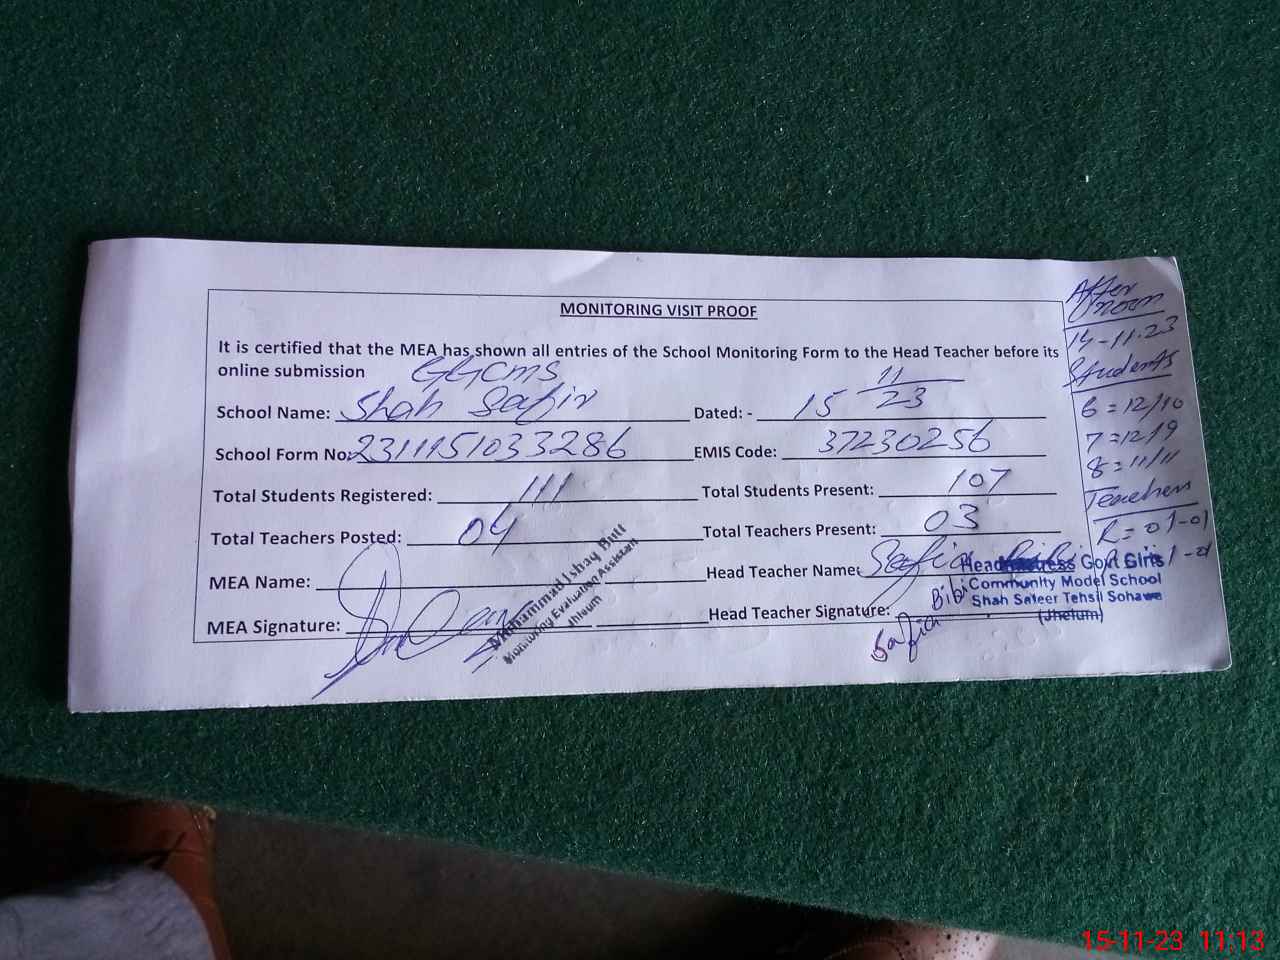 MONITORING VISIT PROOF
It is certified that the MEA has shown all entries of the School Monitoring Form to the Head Teacher before its
online submission
GGCMS
School Name: Shah Safir Dated: - 15 11 23
School Form No: 2311151033286 EMIS Code: 37230256
Total Students Registered: 111 Total Students Present: 107
Total Teachers Posted: 04 Total Teachers Present: 03
MEA Name: Head Teacher Name: Safia Bibi
MEA Signature: Head Teacher Signature: Safia Bibi
Muhammad Ishaq Butt
Monitoring Evaluation Assistant
Jhleum
Headmistress Govt Girls
Community Model School
Shah Safeer Tehsil Sohawa
(Jhelum)
After
noon
14-11-23
Students
6 = 12/10
7 = 12/9
8 = 11/11
Teachers
R = 01-01
15-11-23 11:13